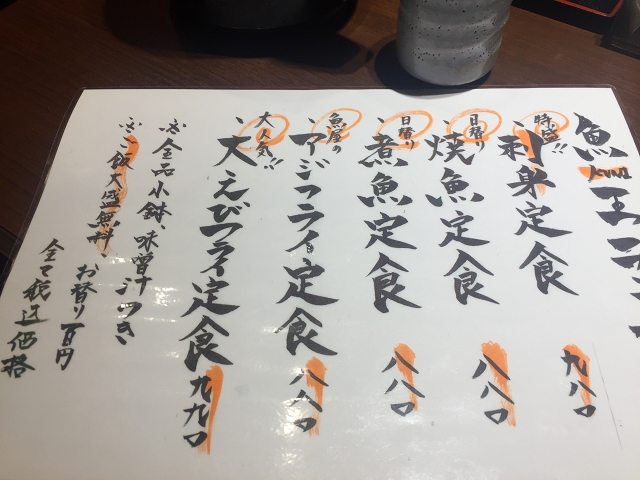 魚
特盛!!
刺身定食 九八〇
日替り
焼魚定食 八八〇
日替り
煮魚定食 八八〇
魚屋の
アジフライ定食 八八〇
大人気!!
大えびフライ定食 九九〇
全品小鉢、味噌汁つき
ご飯大盛無料、お替り百円
全て税込価格